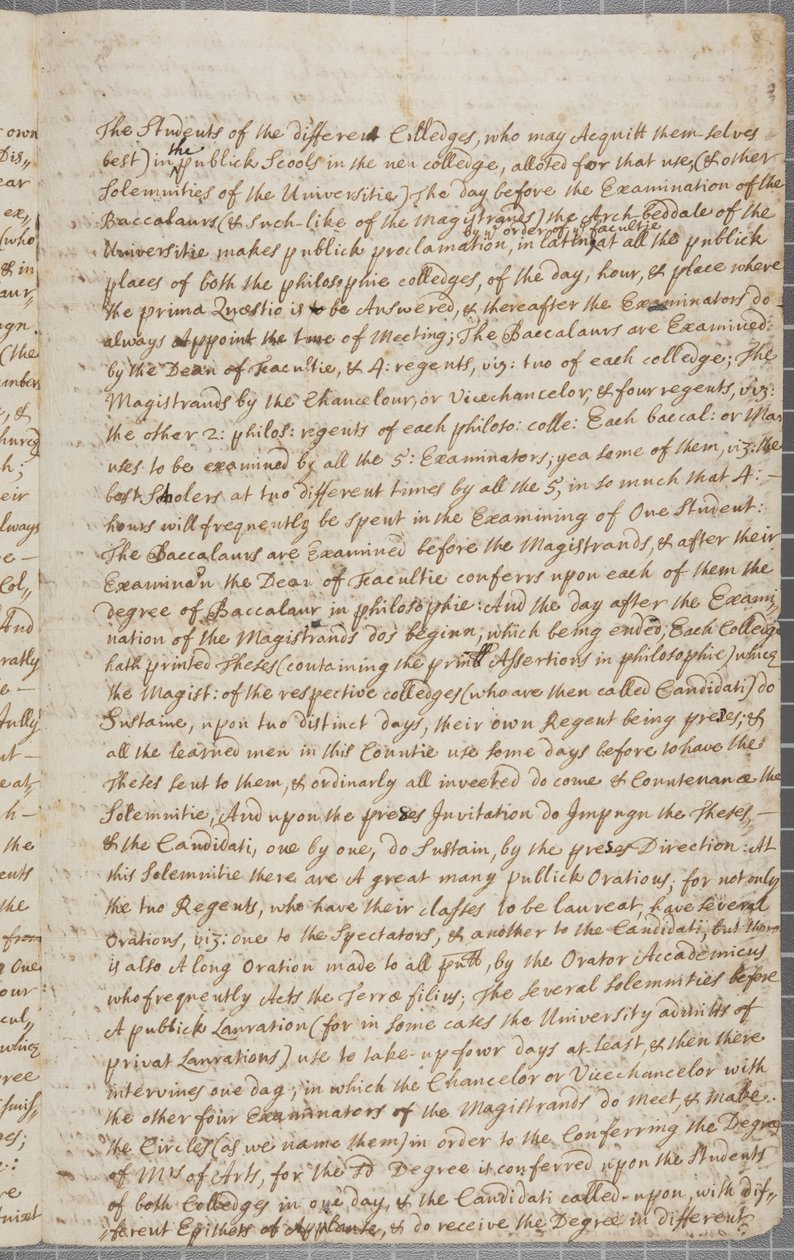 The Students of the different Colledges, who may Acquitt them-selves
best) in the publick Scools in the new colledge, alloted for that use, (& other
Solemnities of the Universitie) The day before the Examination of the
Baccalaurs (& Such-like of the Magistrands) the Arch-beddale of the
by order of facultie
Universitie makes publick proclamation, in latin, at all the publick
places of both the philosophie colledges, of the day, hour, & place where
the prima Quæstio is to be Answered, & thereafter the Examinators do
always Appoint the time of Meeting; The Baccalaurs are Examined:
by the Dean of Facultie, & 4: regents, viz: two of each colledge; The
Magistrands by the Chancelour, or Vicechancelor, & four regents, viz:
the other 2: philos: regents of each philoso: colle: Each baccal: or Ma:
uses to be examined by all the 5: Examinators; yea some of them, viz: the
best Scholers at two different times by all the 5, in so much that 4: -
hours will frequently be Spent in the Examining of One Student:
The Baccalaurs are Examined before the Magistrands, & after their
Examinaōn the Dean of Facultie conferrs upon each of them the
degree of Baccalaur in philosophie: And the day after the Exami„
nation of the Magistrands dos beginn; which being ended, Each Colledge
hath printed Theses (containing the prinll Assertions in philosophie) which
the Magist: of the respective colledges (who are then called Candidati) do
Sustaine, upon two distinct days, their own Regent being preses; &
all the learned men in this Countie use some days before to have the
Theses sent to them, & ordinarly all inveeted do come & Countenance the
Solemnitie, And upon the preses Invitation do Impugn the Theses, -
& the Candidati, one by one, do Sustain, by the preses Direction: At
this Solemnitie there are A great many publick Orations; for not only
the two Regents, who have their classes to be laureat, have Several
Orations, viz: one to the Spectators, & another to the Candidati; but there
is also A long Oration made to all, by the Orator Accademicus
who frequently Acts the Terræ filius; The Several Solemnities before
A publick Lauration (for in Some cases the University admitts of
privat Laurations) use to take-up fowr days at-least, & then there
intervines one day, in which the Chancelor or Vicechancelor with
the other four Examinators of the Magistrands do meet, & make
the Circles (as we name them) in order to the Conferring the Degree
of Mrs of Arts, for the sd Degree is conferred upon the Students
of both Colledges in one day, & the Candidati called-upon, with dif„
„ferent Epithets of Applause, & do receive the Degree in different